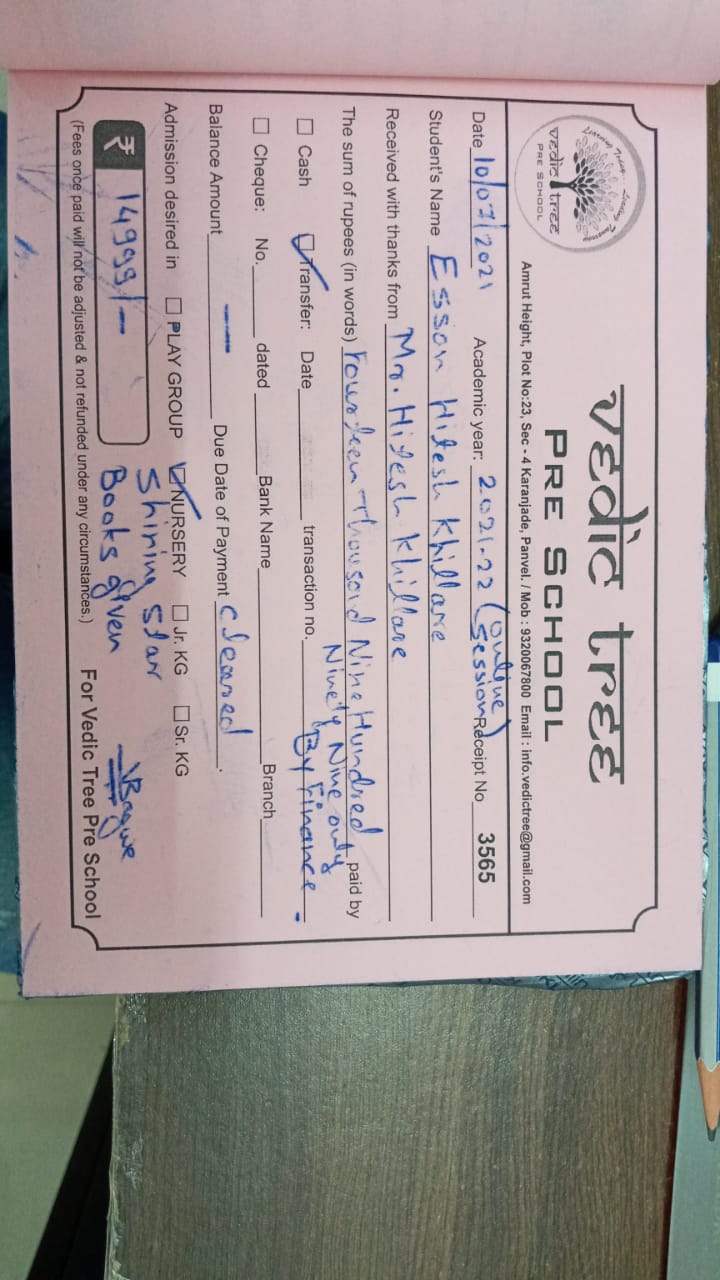 Learning Today... Leading Tomorrow
vedic tree
PRE SCHOOL
vedic tree
PRE SCHOOL
Amrut Height, Plot No:23, Sec - 4 Karanjade, Panvel. / Mob : 9320067800 Email : info.vedictree@gmail.com
Date 10/07/2021 Academic year: 2021-22 (online session) Receipt No 3565
Student's Name Esson Hitesh Khillare
Received with thanks from Mr. Hitesh Khillare
The sum of rupees (in words) Fourteen Thousand Nine Hundred Ninety Nine only paid by
☐ Cash ☑ Transfer: Date transaction no. By Finance.
☐ Cheque: No. dated Bank Name Branch
Balance Amount — Due Date of Payment cleared.
Admission desired in ☐ PLAY GROUP ☑ NURSERY ☐ Jr. KG ☐ Sr. KG
Shining Star
₹ 14999/- Books given
(Fees once paid will not be adjusted & not refunded under any circumstances.) For Vedic Tree Pre School